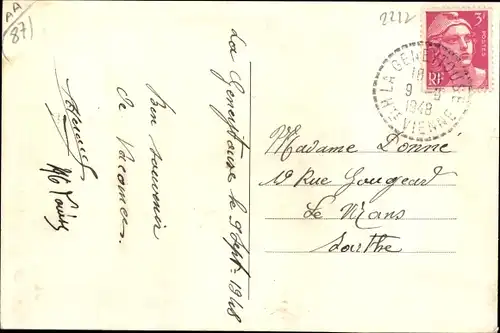 AA
87)
2212
3F
POSTES
RF
LA GENEYTOUSE
18
9-9
1948
Hte VIENNE
La Geneytouse le 9 Sept. 1948
Bon souvenir
de Vacances.
Madame Donné
Rue Gougeard
Le Mans
Sarthe